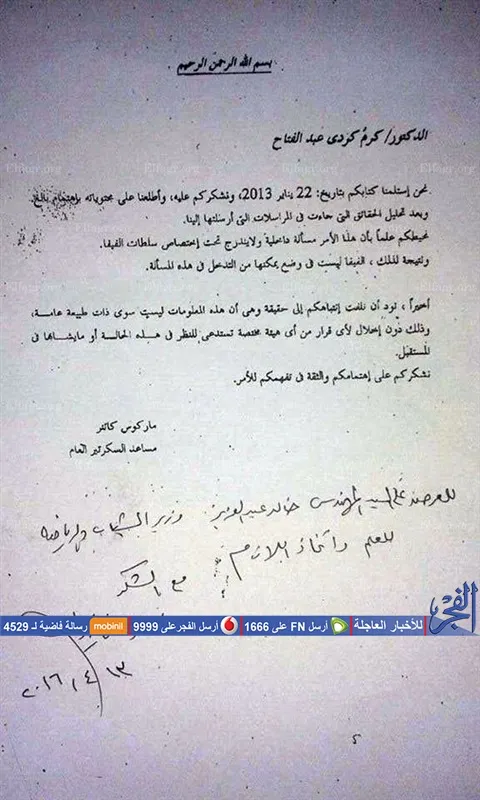 بسم الله الرحمن الرحيم
الدكتور/ كرم كردى عبد الفتاح
نحن إستلمنا كتابكم بتاريخ: 22 يناير 2013، ونشكركم عليه، وأطلعنا على محتوياته بإهتمام بالغ.
وبعد تحليل الحقائق التى جاءت فى المراسلات التى أرسلتها إلينا.
نحيطكم علماً بأن هذا الأمر مسألة داخلية ولايندرج تحت إختصاص سلطات الفيفا.
ونتيجة لذلك ، الفيفا ليست فى وضع يمكنها من التدخل فى هذه المسألة.
أخيراً ، نود أن نلفت إنتباهكم إلى حقيقة وهى أن هذه المعلومات ليست سوى ذات طبيعة عامة،
وذلك دون إخلال لأى قرار من أى هيئة مختصة تستدعى للنظر فى هذه الحالة أو مايشابها فى
المستقبل.
نشكركم على إهتمامكم والثقة فى تفهمكم للأمر.
ماركوس كاتنر
مساعد السكرتير العام
للعرض على السيد المهندس خالد عبد العزيز وزير الشباب والرياضة
للعلم واتخاذ اللازم
مع الشكر
الفجر للأخبار العاجلة أرسل FN على 1666 أرسل الفجر على 9999 mobinil رسالة فاضية لـ 4529
١٣ / ٤ / ٢٠١٦
٤